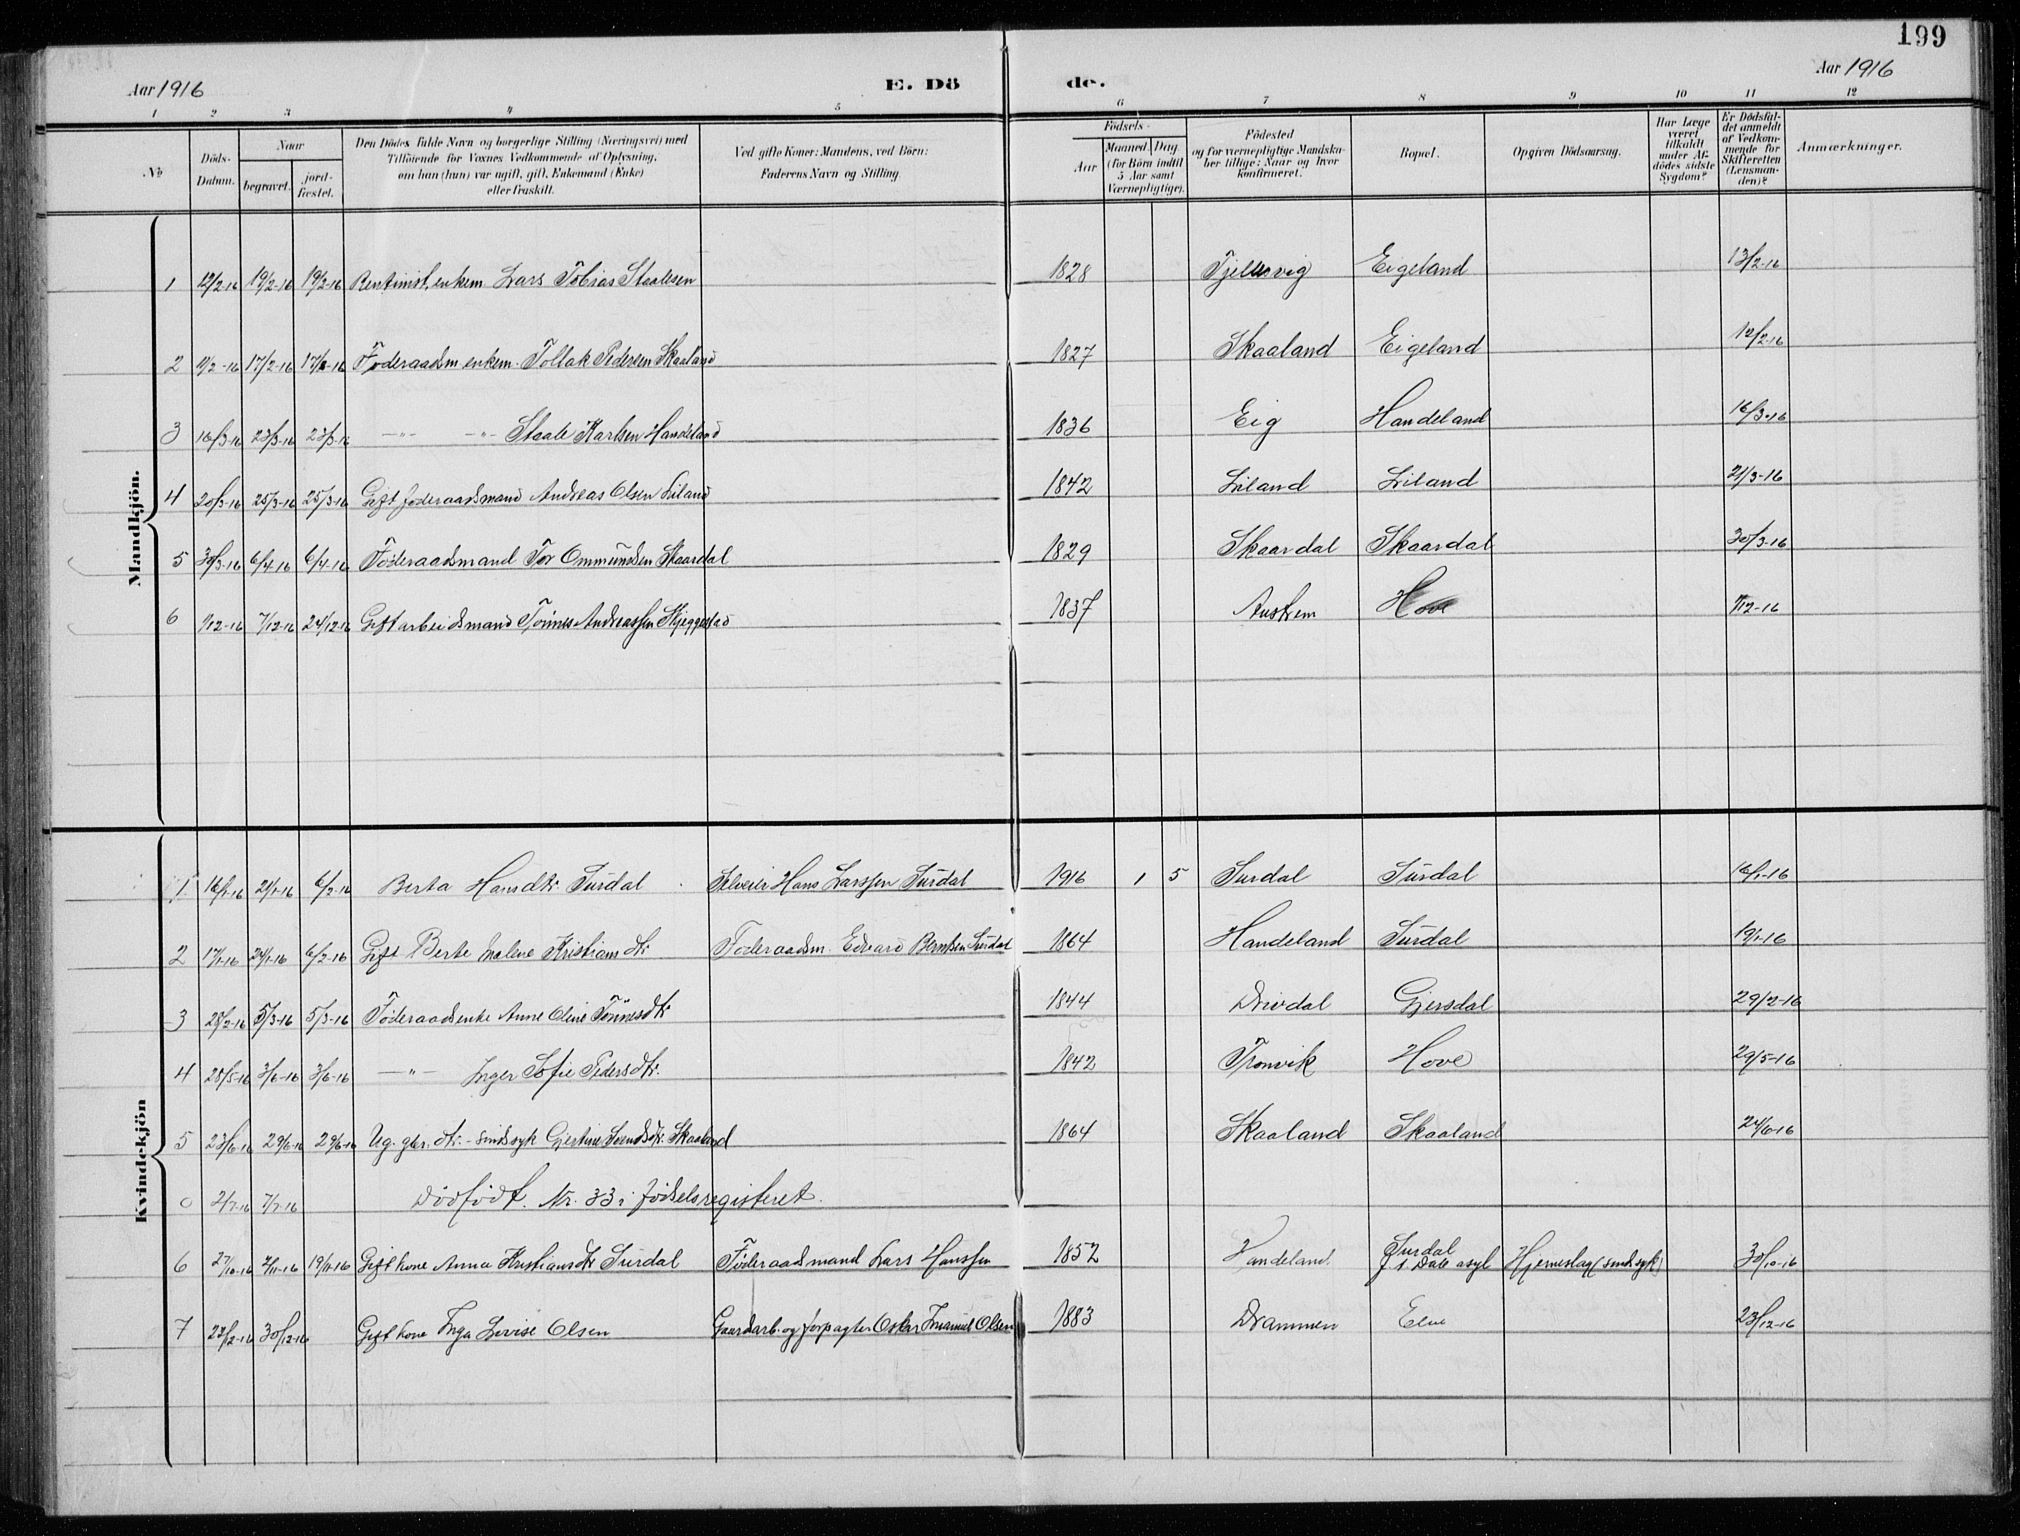 199
Aar 1916 E. Dö de. Aar 1916
1 2 3 4 5 6 7 8 9 10 11 12
No
Döds-
Datum.
Naar
begravet.
jord-
fæstet.
Den Dödes fulde Navn og borgerlige Stilling (Næringsvei) med
Tilföiende for Voxnes Vedkommende af Oplysning,
om han (hun) var ugift, gift, Enkemand (Enke)
eller fraskilt.
Ved gifte Koner: Mandens, ved Börn:
Faderens Navn og Stilling.
Födsels-
Aar
Maaned. Dag.
(for Börn indtil
5 Aar samt
Værnepligtige).
Födested
og for værnepligtige Mandska-
ber tillige: Naar og hvor
konfirmeret.
Bopæl.
Opgiven Dödsaarsag.
Har Læge
været
tilkaldt
under Af-
dödes sidste
Sygdom?
Er Dödsfal-
det anmeldt
af Vedkom-
mende for
Skifteretten
(Lensman-
den)?
Anmærkninger.
Mandkjön.
1 12/2-16 19/2-16 19/2-16 Rentinist, enkem. Lars Tobias Staalesen 1828 Tjellsvig Eigeland 13/2-16
2 9/2-16 17/2-16 17/2-16 Føderaadsm. enkem. Tollak Pedersen Skaaland 1827 Skaaland Eigeland 12/2-16
3 16/3-16 23/3-16 23/3-16 -"- -"- Staale Karlsen Handeland 1836 Eig Handeland 16/3-16
4 20/3-16 25/3-16 25/3-16 Gift føderaadsmand Andreas Olsen Liland 1842 Liland Liland 21/3-16
5 30/3-16 6/4-16 6/4-16 Føderaadsmand Tor Ommundsen Skaardal 1829 Skaardal Skaardal 30/3-16
6 1/12-16 7/12-16 24/12-16 Gift arbeidsmand Tønnes Andreassen Skjeggestad 1837 Austrem Hove 1/12-16
Kvindekjön
1. 16/1-16 21/1-16 6/2-16 Berta Hansdtr. Surdal Selveier Hans Larssen Surdal 1916 1 5 Surdal Surdal 16/1-16
2 17/1-16 24/1-16 6/2-16 Gift Berte Malene Kristiansdtr. Føderaadsm. Edvard Berntsen Surdal 1864 Handeland Surdal 19/1-16
3 28/2-16 5/3-16 5/3-16 Føderaadsenke Anne Oline Tønnesdtr. 1844 Drivdal Gjersdal 29/2-16
4 28/5-16 3/6-16 3/6-16 -"- Inger Sofie Pedersdtr. 1842 Tronvik Hove 29/5-16
5 23/6-16 29/6-16 29/6-16 Ug. gbr. dtr. - sindssyk Gjertine Svendsdtr. Skaaland 1864 Skaaland Skaaland 24/6-16
0 2/7-16 7/7-16 Dødfødt. Nr. 33 i fødselsregisteret.
6 27/10-16 4/11-16 19/11-16 Gift kone Anna Kristiansdtr Surdal Føderaadsmand Lars Hanssen 1852 Handeland. Surdal
f. i Dale asyl Hjerneslag (sindssyk) 30/10-16
7 22/12-16 30/12-16 Gift kone Inga Lovise Olsen Gaardarb. og forpagter Oskar Imanuel Olsen 1883 Drammen Elve 23/12-16